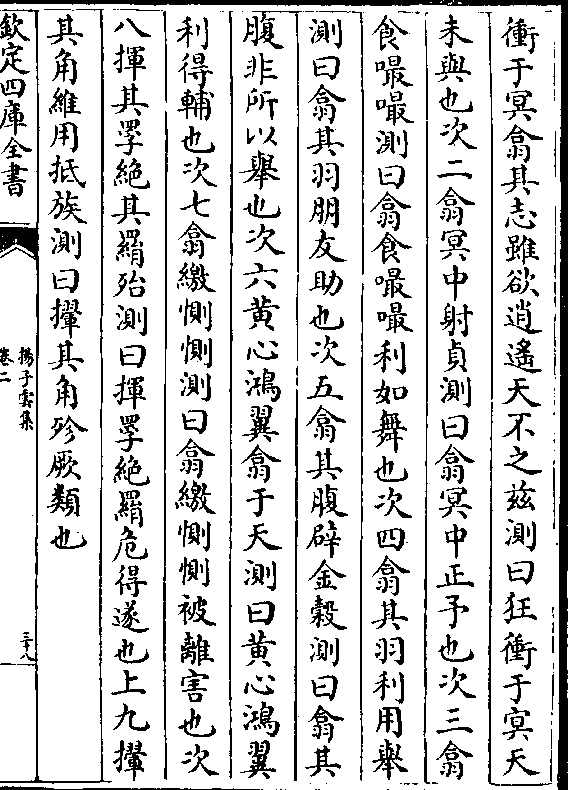 衝于冥翕其志雖欲逍遙天不之兹測曰狂衝于冥天
未與也次二翕冥中射貞測曰翕冥中正予也次三翕
食嘬嘬測曰翕食嘬嘬利如舞也次四翕其羽利用舉
測曰翕其羽朋友助也次五翕其腹辟金穀測曰翕其
腹非所以舉也次六黄心鴻翼翕于天測曰黄心鴻翼
利得輔也次七翕繳惻惻測曰翕繳惻惻被離害也次
八揮其罦絶其羂殆測曰揮罦絶羂危得遂也上九揱
其角維用抵族測曰揱其角殄厥類也
欽定四庫全書
揚子雲集
卷二
三十八